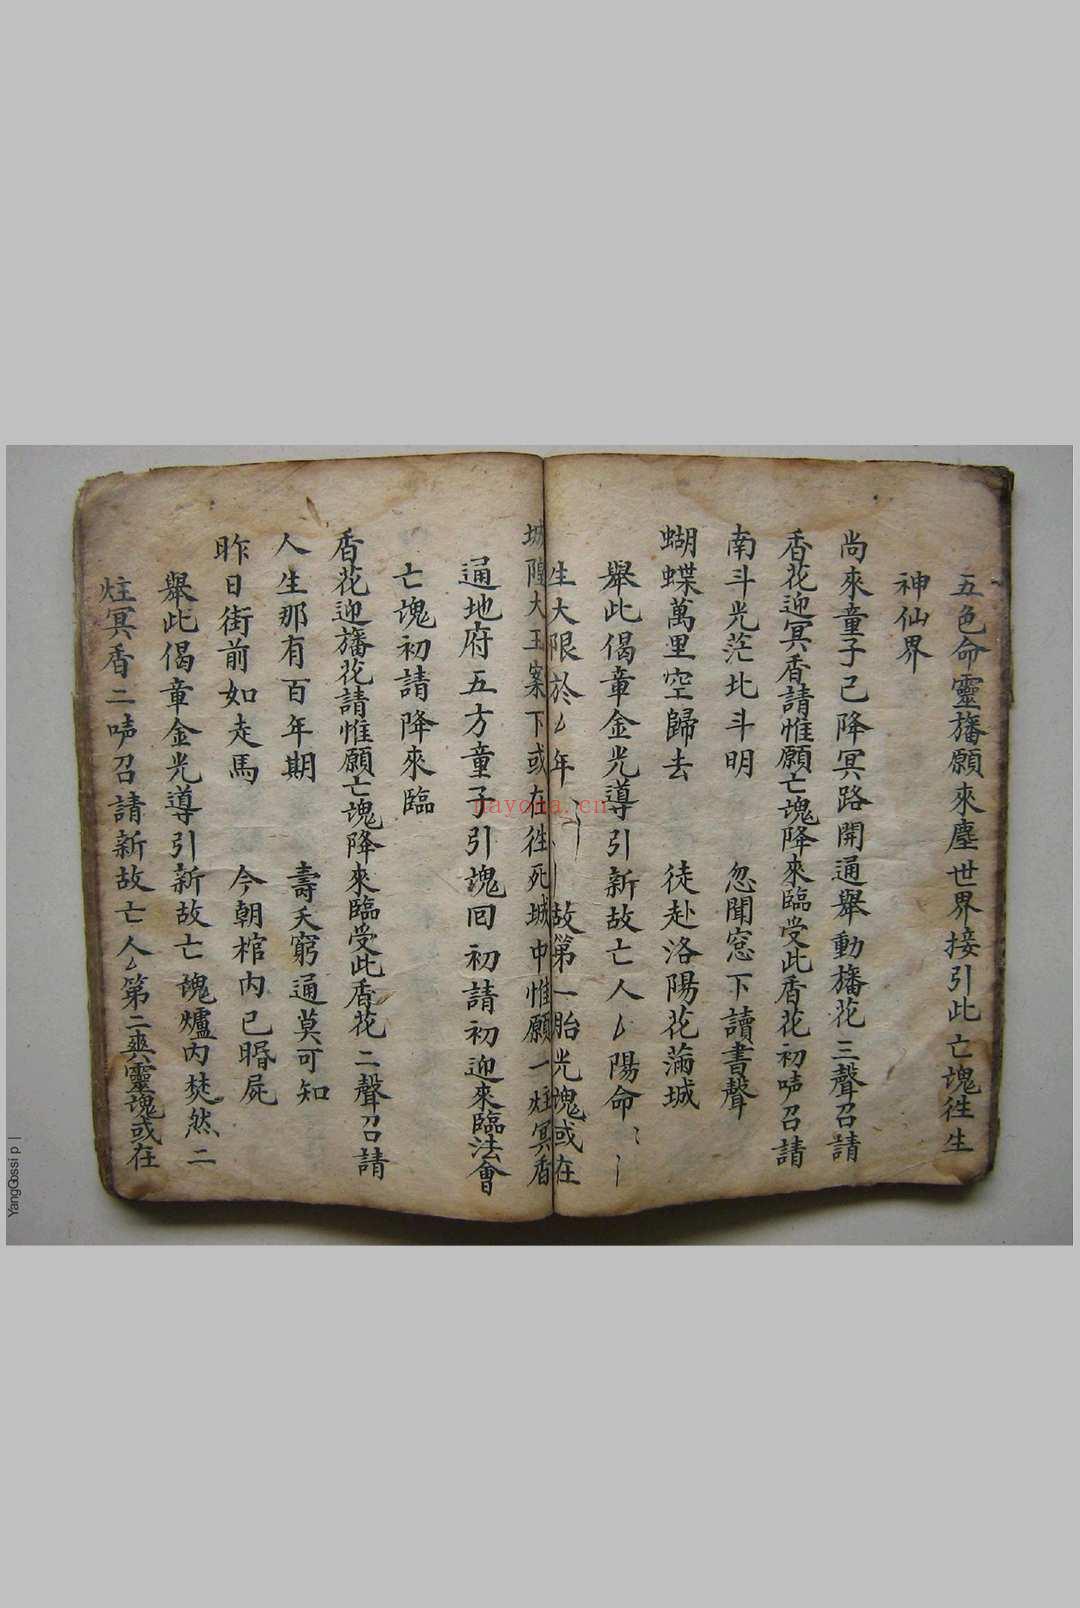 五色命靈旛願來塵世界接引此亡魂徃生
神仙界
尚來童子已降冥路開通舉動旛花三聲召請
香花迎冥香請惟願亡魂降來臨受此香花初吽召請
南斗光茫北斗明 忽聞窓下讀書聲
蝴蝶萬里空歸去 徒赴洛陽花滿城
舉此偈章金光導引新故亡人厶陽命
生大限於厶年 故第一胎光魂或在
城隍大王案下或在徃死城中惟願一炷冥香
通地府五方童子引魂囘初請初迎來臨法會
亡魂初請降來臨
香花迎旛花請惟願亡魂降來臨受此香花二聲召請
人生那有百年期 壽夭窮通莫可知
昨日街前如走馬 今朝棺內已㬰屍
舉此偈章金光導引新故亡魂爐內焚然二
炷冥香二吽召請新故亡人厶第二爽靈魂或在
nayona.cn
YangGossip |